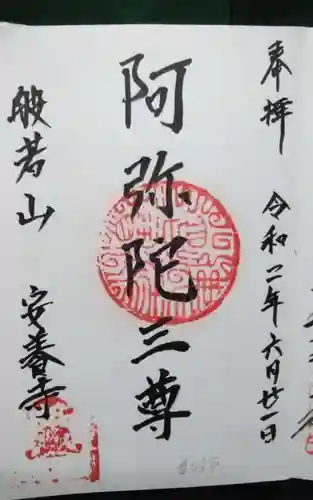 奉拝
令和二年六月廿一日
阿弥陀三尊
般若山
安養寺